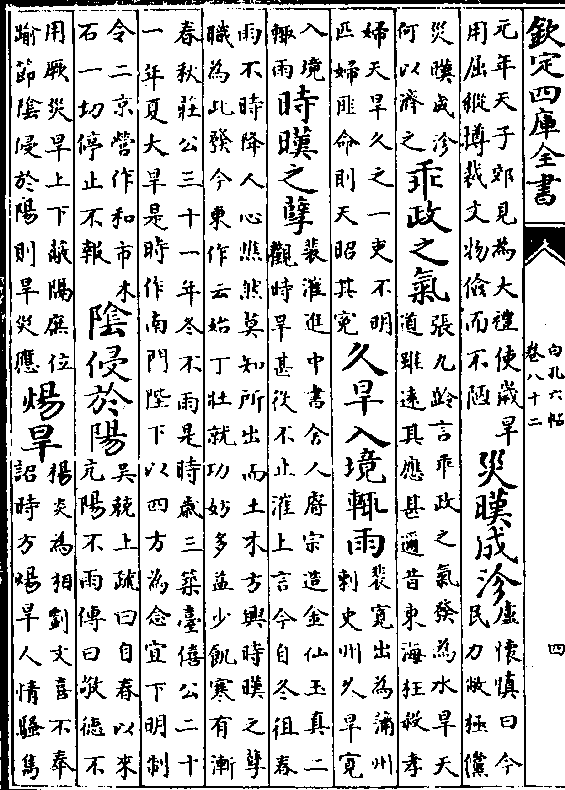 欽定四庫全書
白孔六帖
卷八十二
四
元年天子郊見為大禮使歲旱
用屈縱撙裁文物儉而不陋
災暵成沴
盧懷慎曰今
民力敝極儻
災暵成沴
何以濟之
乖政之氣
張九齡言乖政之氣發為水旱天
道雖遠其應甚邇昔東海枉殺孝
婦天旱久之一吏不明
匹婦匪命則天昭其寃
久旱入境輒雨
裴寛出為蒲州
刺史州久旱寛
入境
輒雨
時暵之孽
裴漼進中書舍人睿宗造金仙玉真二
觀時旱甚役不止漼上言今自冬徂春
雨不時降人心憔然莫知所出而土木方興時暵之孽
職為此發今東作云始丁壯就功妨多益少飢寒有漸
春秋莊公三十一年冬不雨是時歲三築臺僖公二十
一年夏大旱是時作南門陛下以四方為念宜下明制
令二京營作和市木
石一切停止不報
陰侵於陽
吳兢上疏曰自春以來
亢陽不雨傳曰敬德不
用厥災旱上下蔽隔庶位
踰節陰侵於陽則旱災應
煬旱
楊炎為相劉文喜不奉
詔時方煬旱人情騷雋